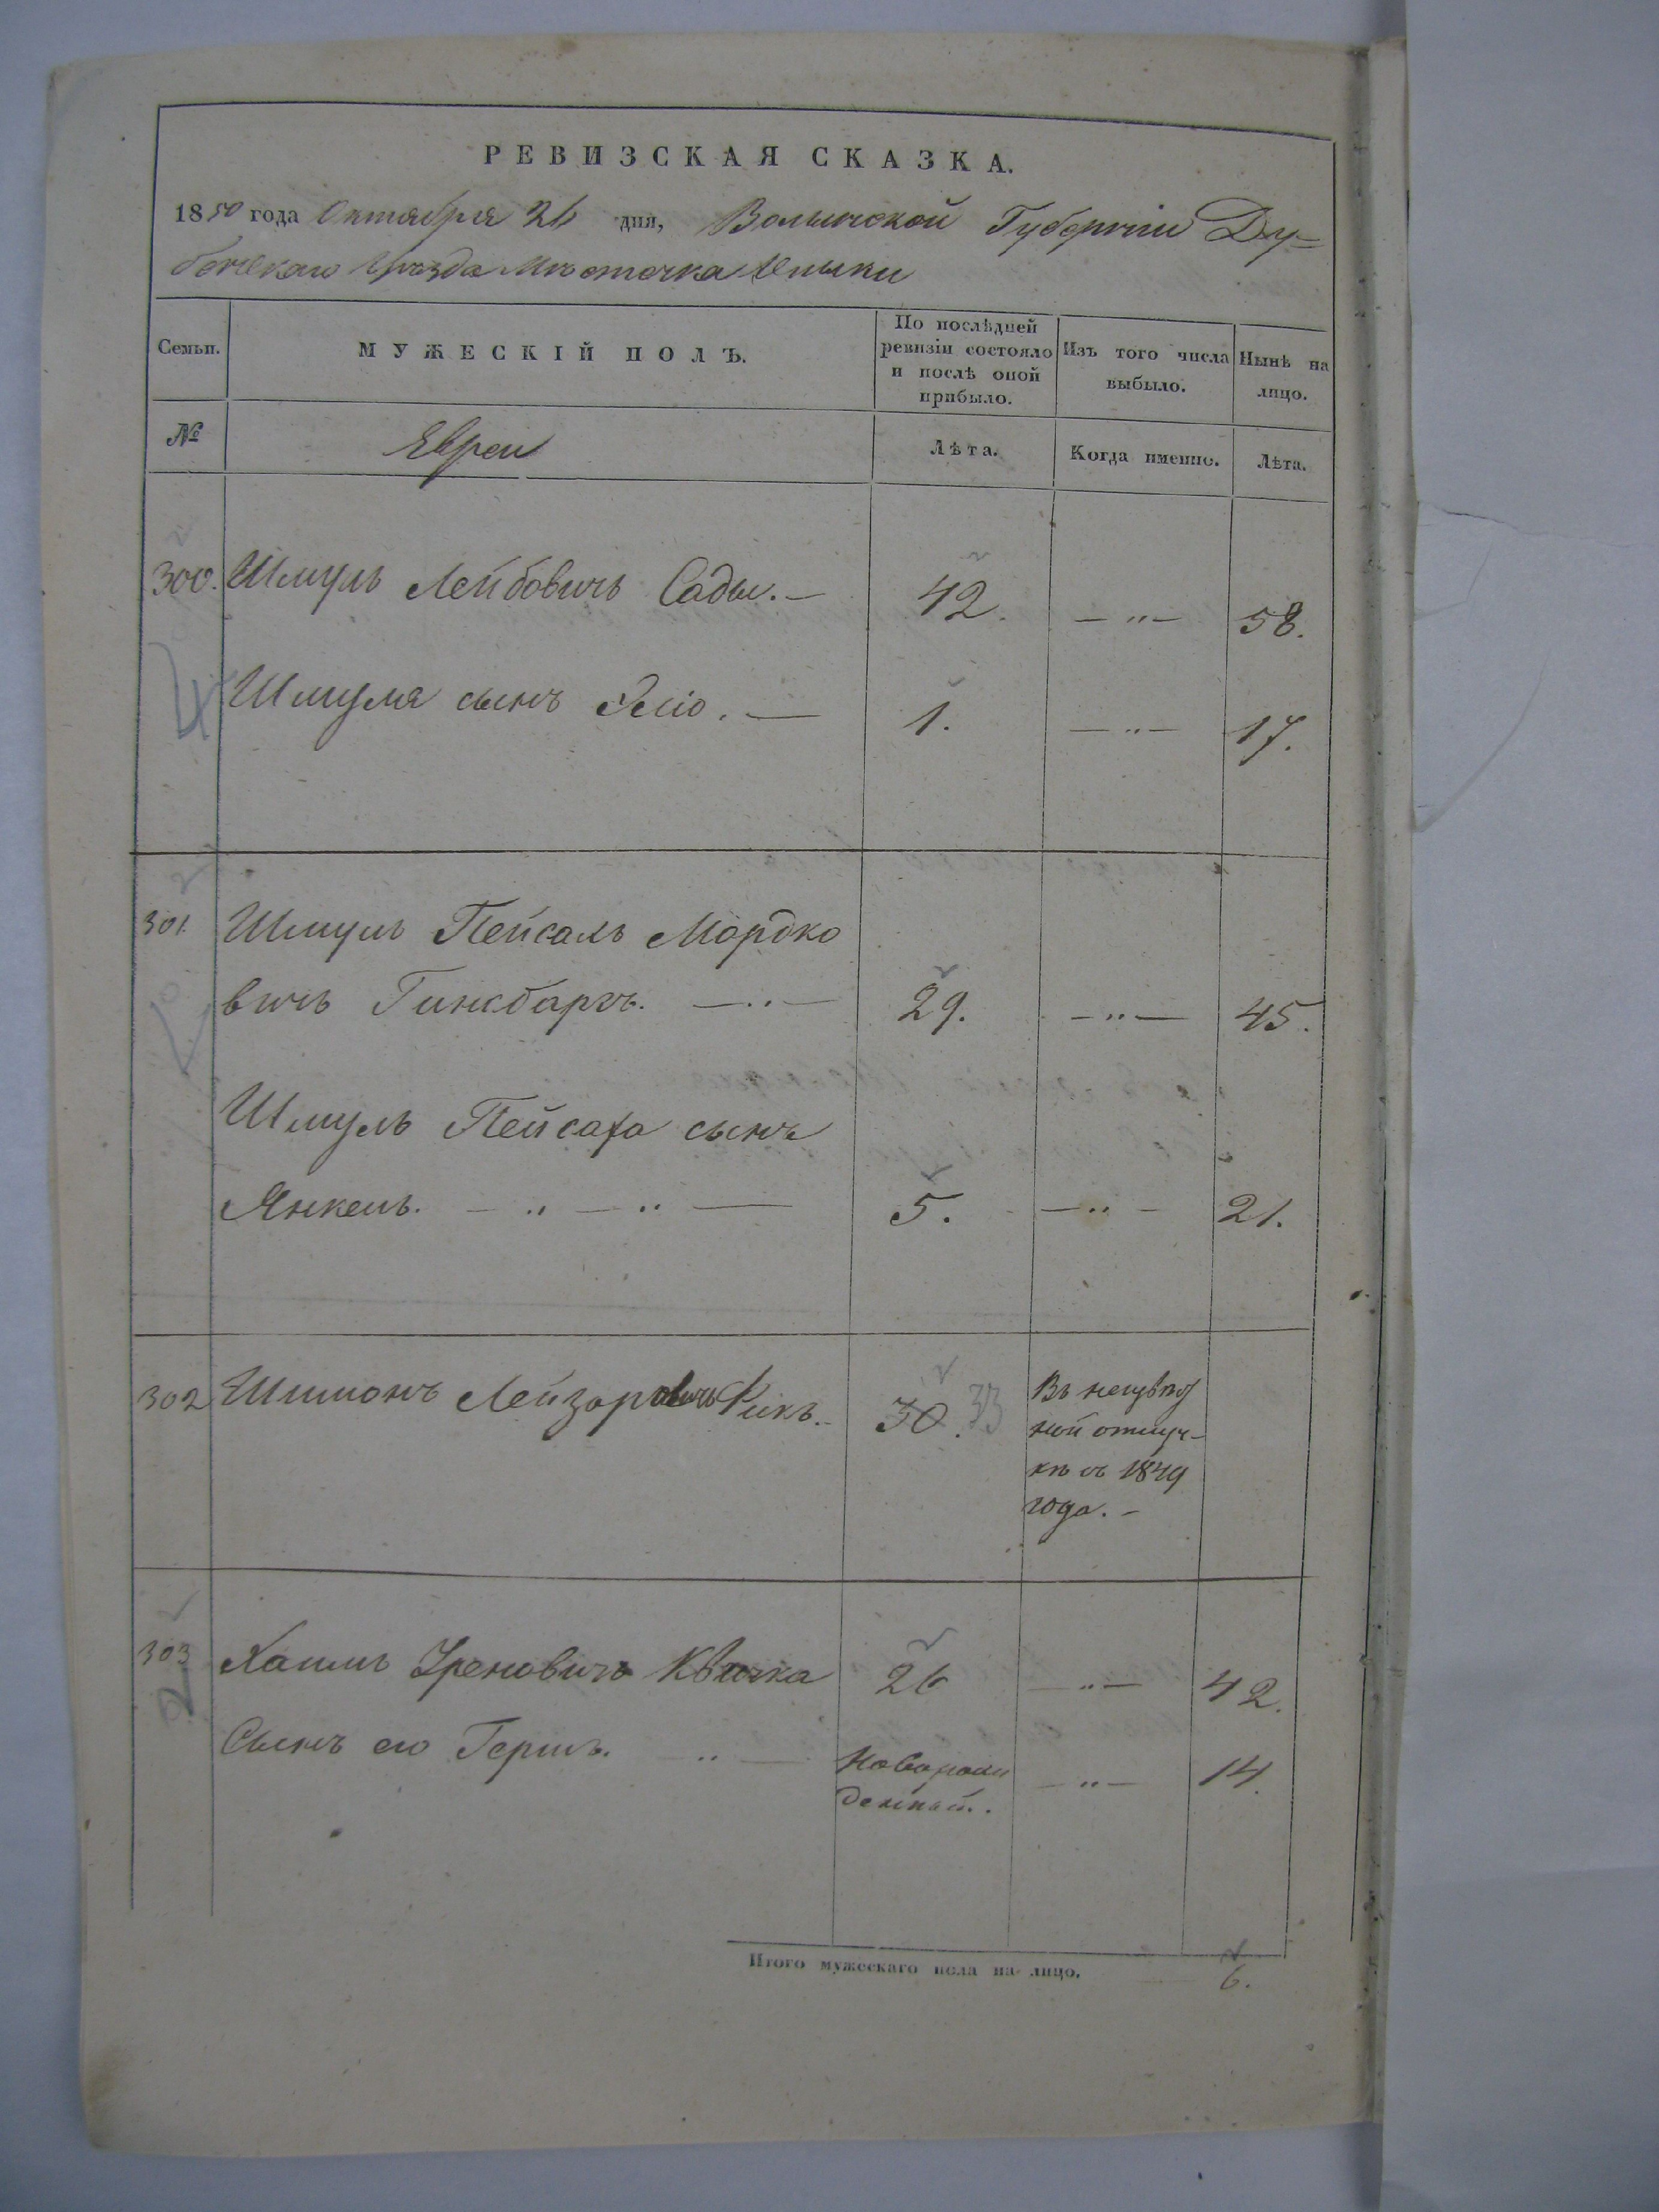 РЕВИЗСКАЯ СКАЗКА.
1850 года Октября 26 дня, Волынской Губерніи Ду-
бенскаго Уѣзда Мѣстечка Олыки
Семьи.
МУЖЕСКІЙ ПОЛЪ.
По послѣдней ревизіи состояло и послѣ оной прибыло.
Изъ того числа выбыло.
Нынѣ на лицо.
№ Евреи Лѣта. Когда именно. Лѣта.
300. Шмуль Лейбовичъ Сады. — 42. — „ — 58.
Шмуля сынъ — 1. — „ — 17.
301. Шмуль Пейсахъ Мордко
вичъ Гинсбаргъ. — „ — 29. — „ — 45.
Шмуль Пейсаха сынъ
Янкель. — „ — „ — 5. — „ — 21.
302 Шимонъ Лейзоровичъ Фикъ. — 30. 33
Въ неизвѣст
ной отлуч-
кѣ съ 1849
года. —
303 Хаимъ Уреновичъ Квочка 26 — „ — 42.
Сынъ его Гершъ. „ — Новорож
денный. — „ — 14.
2
Итого мужескаго пола на лицо. 6.